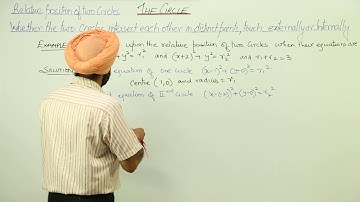 Relative position of two Circles THE CIRCLE
Whether the two Circles intersect each other in distinct points, touch externally or Internally
EXAMPLE upon the relative position of two Circles when their equations are
y² = r₁² and (x+2)² + y² = r₂² and r₁ + r₂ = 3
SOLUTION equation of one circle (x-1)² + (y-0)² = r₁²
Centre (1,0) and radius = r₁
equation of IInd Circle + (y-0)² = r₂²